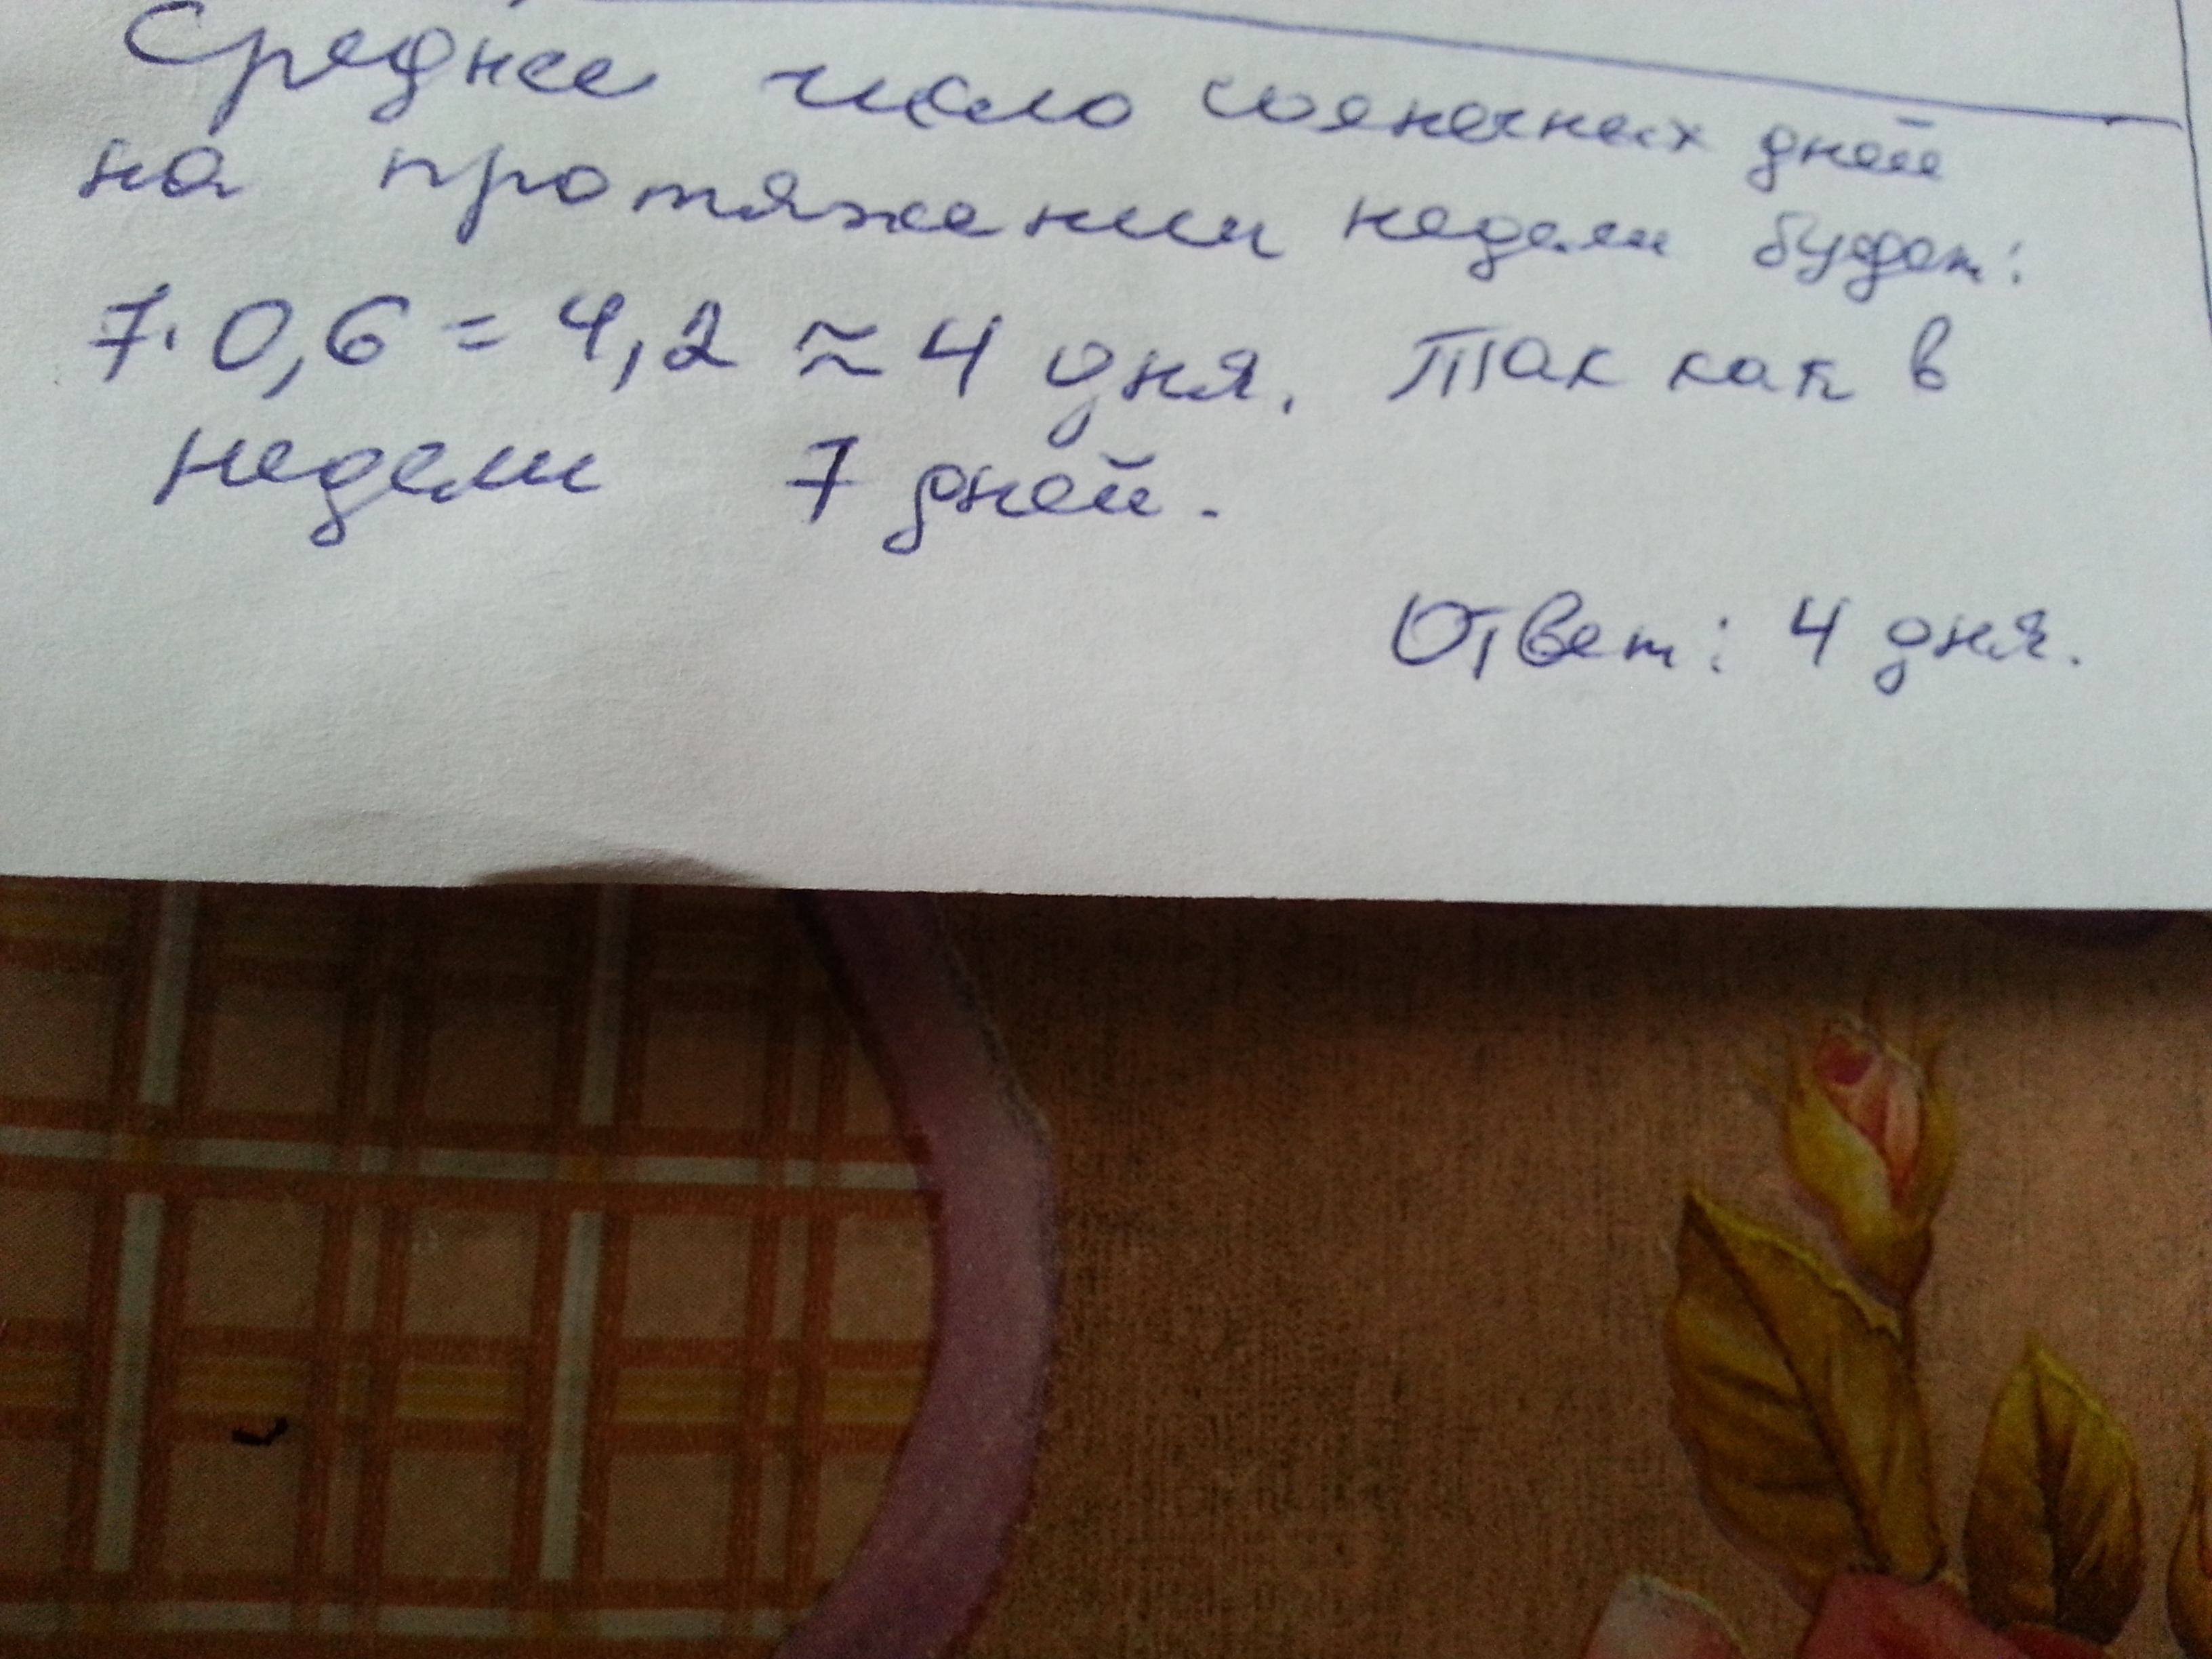 Среднее число солнечных дней
на протяжении недели будет:
7. 0,6 = 4,2 ≈ 4 дня. Так как в
недели 7 дней.
Ответ: 4 дня.